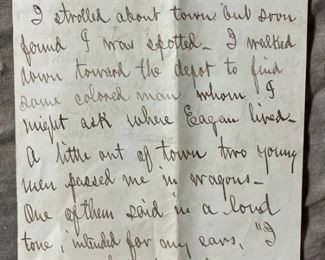 I strolled about town but soon
found I was spotted – I walked
down toward the depot to find
some colored man whom I
might ask where Eagan lived –
A little out of town two young
men passed me in wagons –
One of them said in a loud
tone, intended for my ears, "I